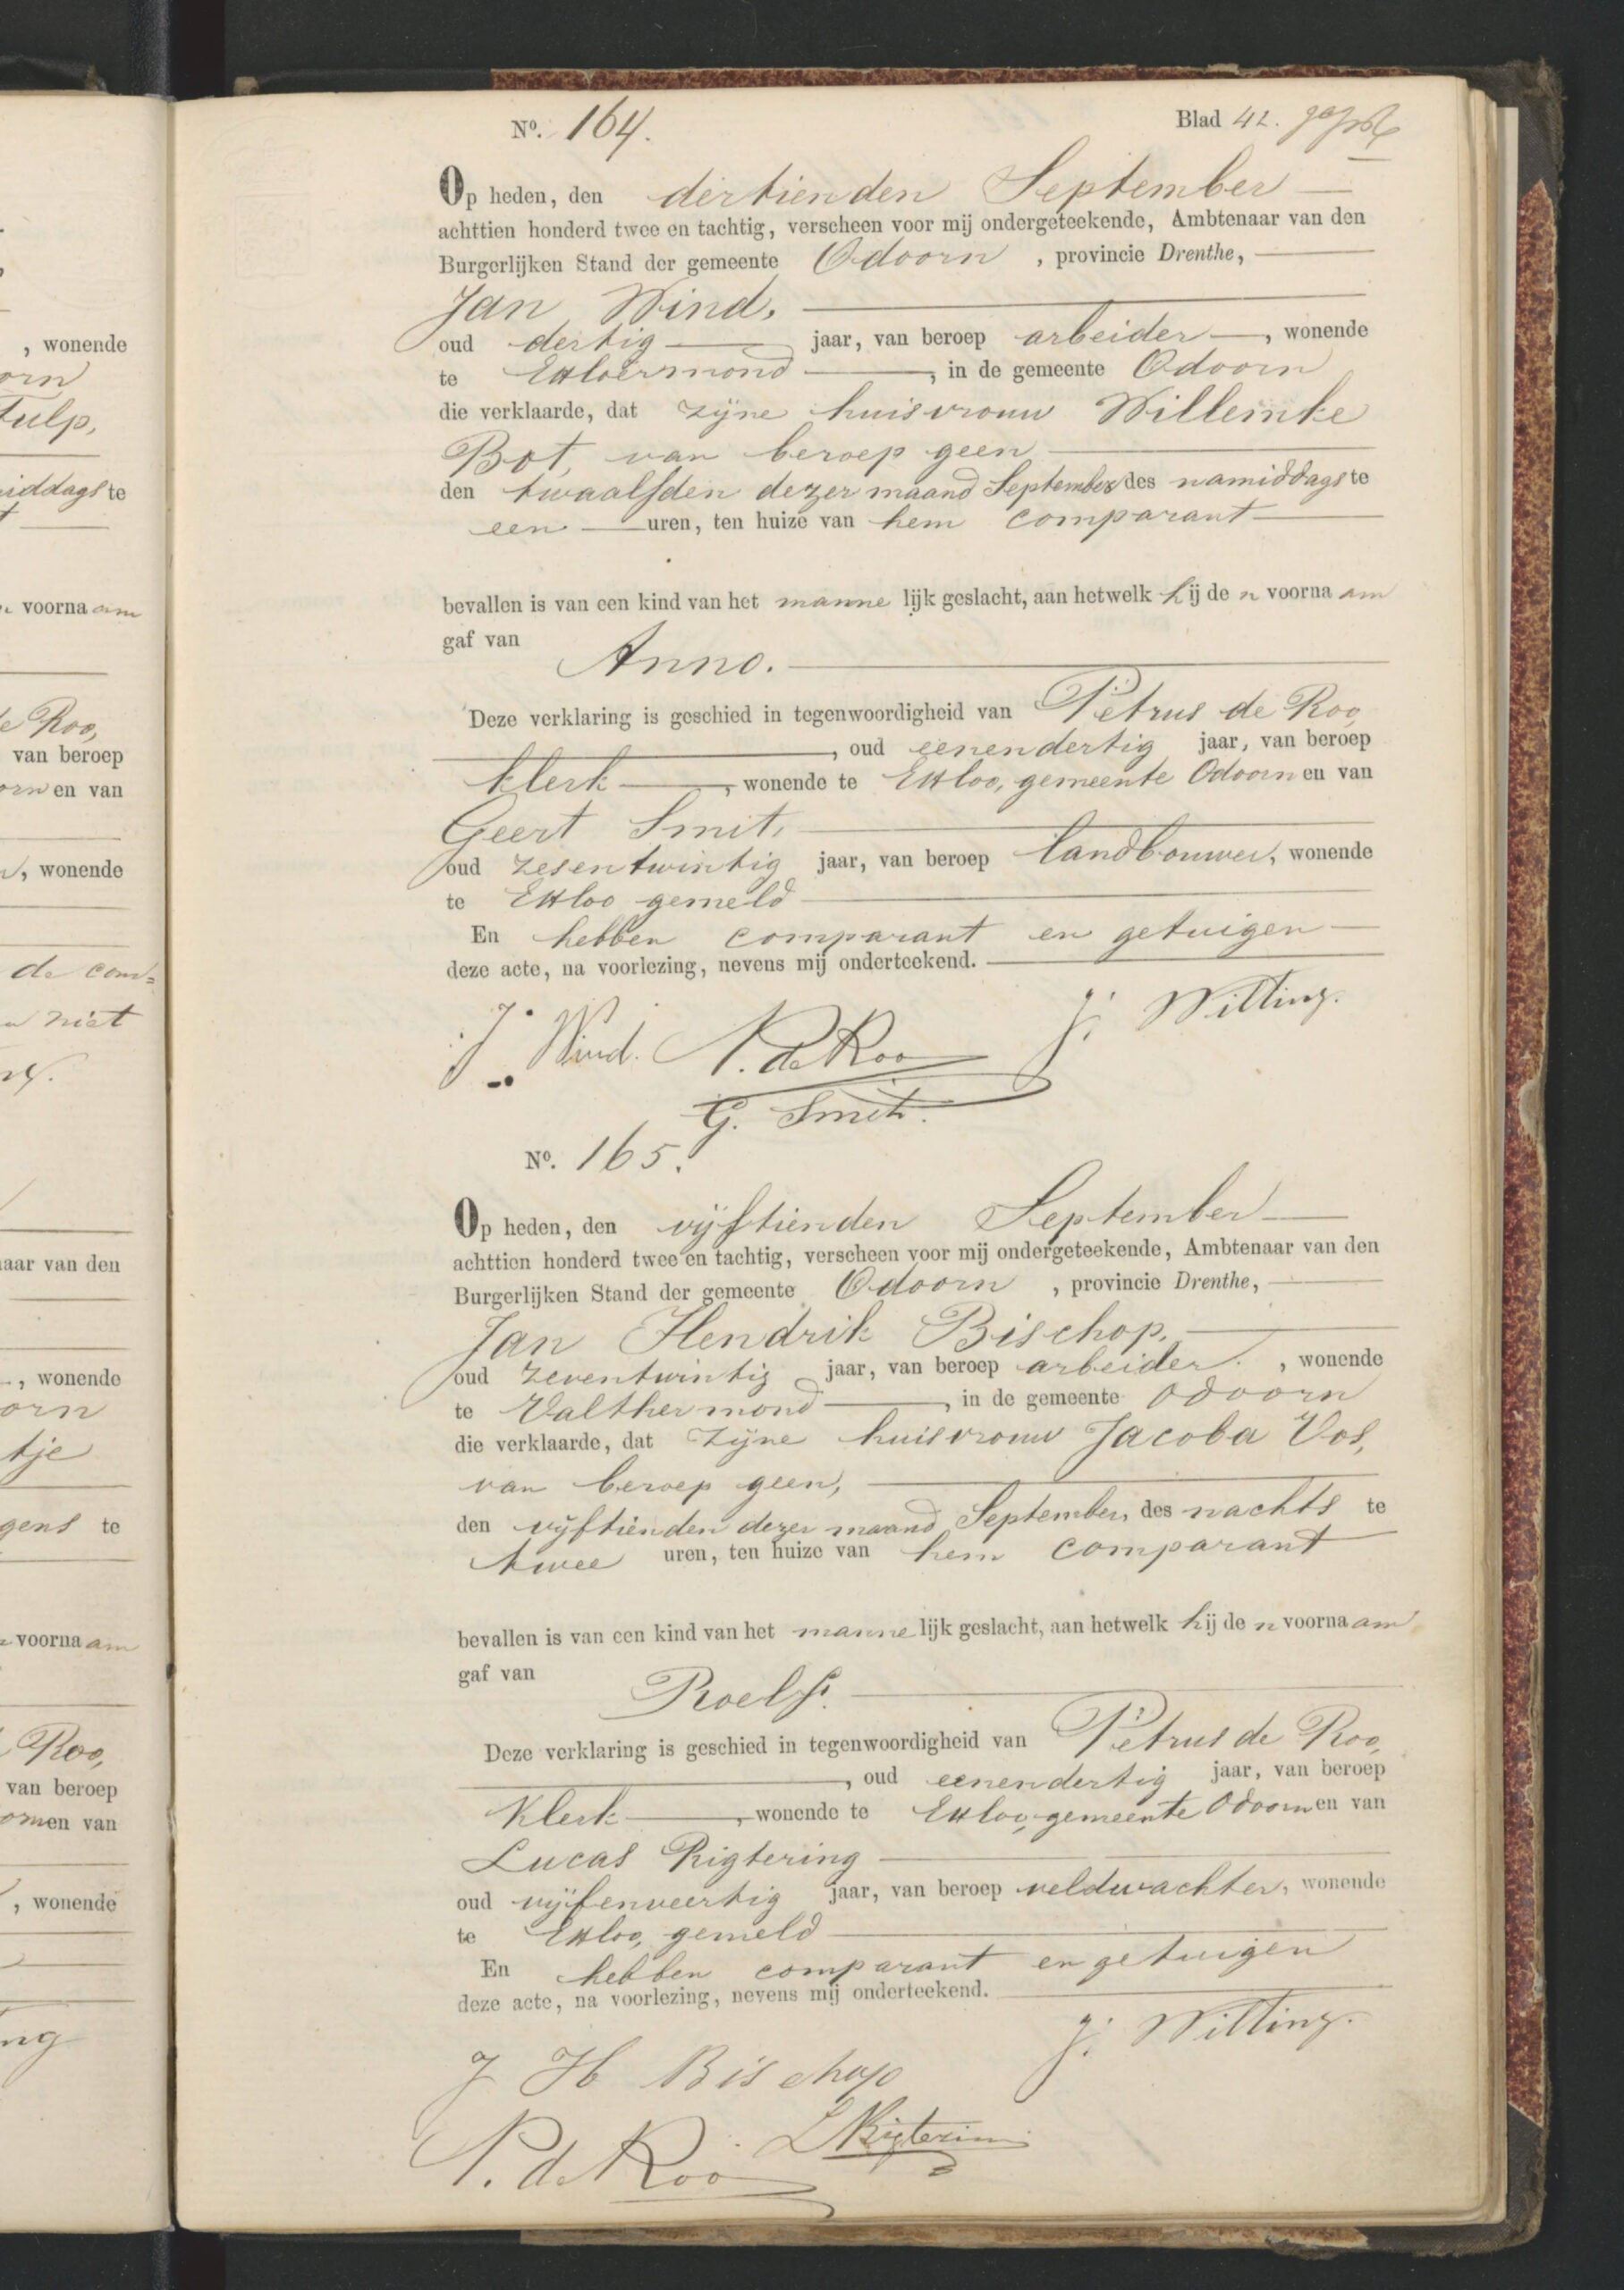 , wonende
orn
Tulp,
iddags te
voorna am
de Roo,
van beroep
orn en van
, wonende
de com=
niet
aar van den
, wonende
orn
tje
gens te
voorna am
Roo,
van beroep
orn en van
, wonende
ng
No. 164.
Blad 42.
Op heden, den dertienden September
achttien honderd twee en tachtig, verscheen voor mij ondergeteekende, Ambtenaar van den
Burgerlijken Stand der gemeente Odoorn, provincie Drenthe,
Jan Wind,
oud dertig jaar, van beroep arbeider, wonende
te Exloërmond, in de gemeente Odoorn
die verklaarde, dat zijne huisvrouw Willemke
Bot, van beroep geen
den twaalfden dezer maand September des namiddags te
een uren, ten huize van hem comparant
bevallen is van een kind van het mannelijk geslacht, aan hetwelk hij den voornaam
gaf van
Anno.
Deze verklaring is geschied in tegenwoordigheid van Petrus de Roo,
, oud eenendertig jaar, van beroep
klerk, wonende te Exloo, gemeente Odoorn en van
Geert Smit,
oud zesentwintig jaar, van beroep landbouwer, wonende
te Exloo gemeld
En hebben comparant en getuigen
deze acte, na voorlezing, nevens mij onderteekend.
J. Wind. P. de Roo J. Wilting.
G. Smit.
No. 165.
Op heden, den vijftienden September
achttien honderd twee en tachtig, verscheen voor mij ondergeteekende, Ambtenaar van den
Burgerlijken Stand der gemeente Odoorn, provincie Drenthe,
Jan Hendrik Bischop,
oud zeventwintig jaar, van beroep arbeider, wonende
te Valthermond, in de gemeente Odoorn
die verklaarde, dat zijne huisvrouw Jacoba Vos,
van beroep geen,
den vijftienden dezer maand September, des nachts te
twee uren, ten huize van hem comparant
bevallen is van een kind van het mannelijk geslacht, aan hetwelk hij den voornaam
gaf van
Roelf.
Deze verklaring is geschied in tegenwoordigheid van Petrus de Roo,
, oud eenendertig jaar, van beroep
Klerk, wonende te Exloo, gemeente Odoorn en van
Lucas Rigtering
oud vijfenveertig jaar, van beroep veldwachter, wonende
te Exloo, gemeld
En hebben comparant en getuigen
deze acte, na voorlezing, nevens mij onderteekend.
J. Wilting.
J H Bischop
P. de Roo L Rigtering